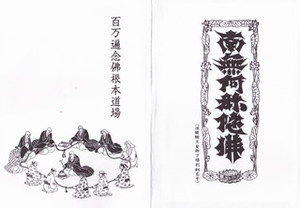 南無阿弥陀佛
百万遍念佛根本道場